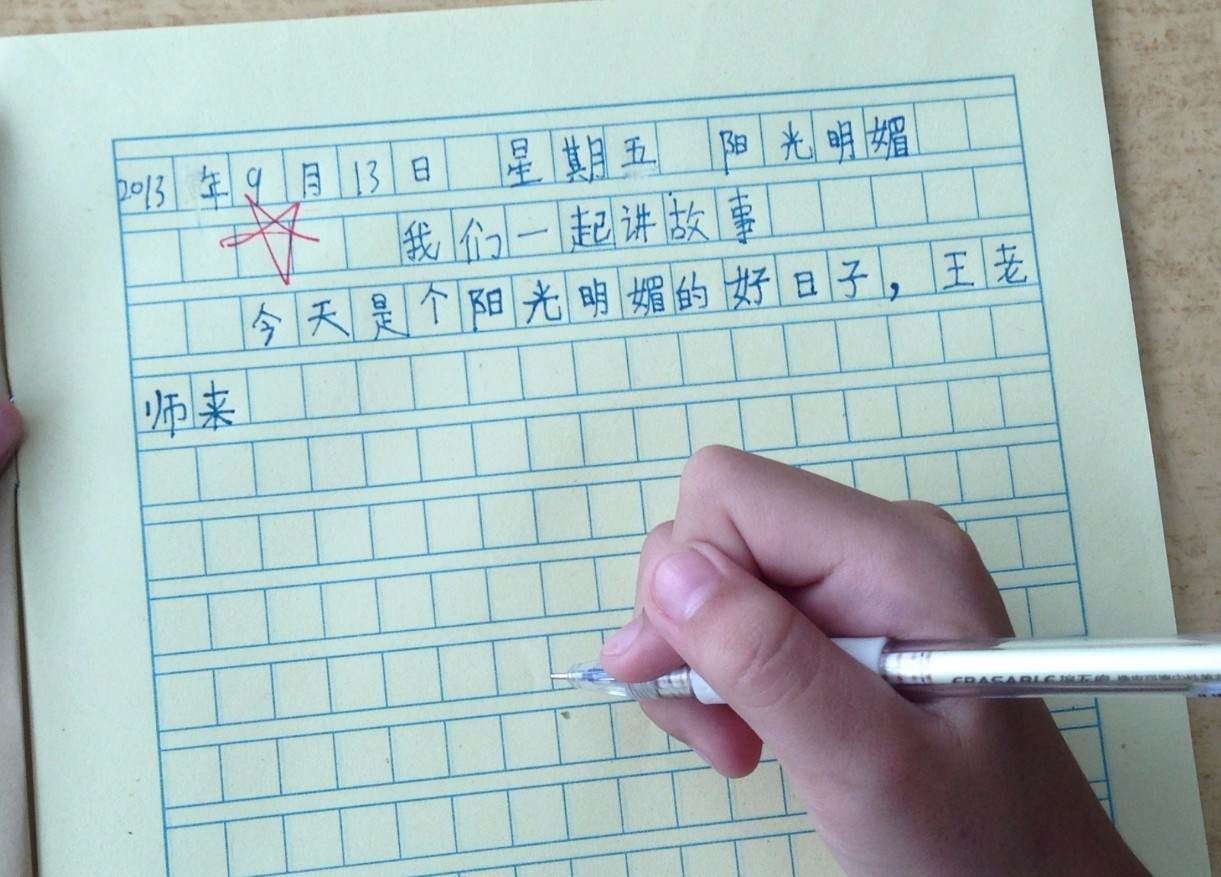 2013年9月13日 星期五 阳光明媚
我们一起讲故事
今天是个阳光明媚的好日子，王老
师来
ERASABLE